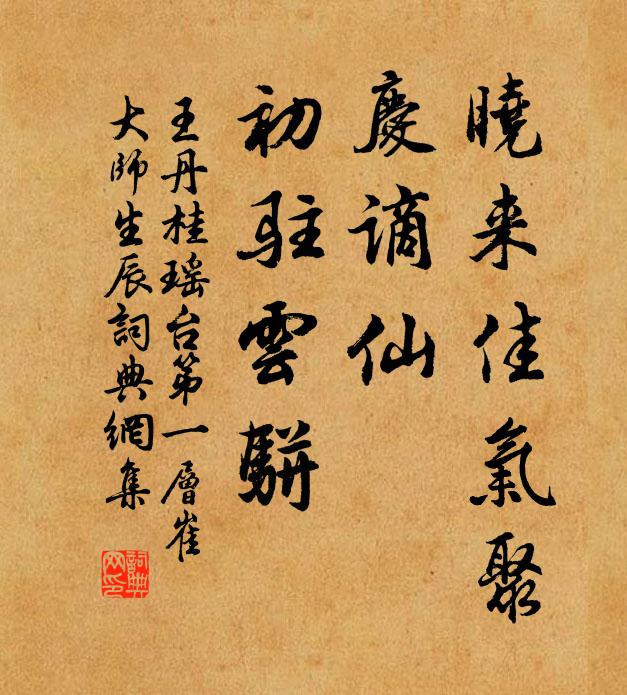 曉来佳氣聚
慶謫仙
初駐雲駢
王丹桂瑶台第一層崔
大師生辰詞典網集
詞典
网印